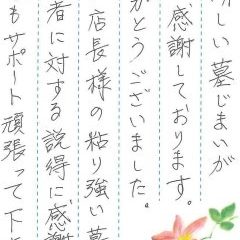 しい墓じまいが
感謝しております。
がとうございました。
店長様の粘り強い墓
者に対する説得に感謝
もサポート頑張って下